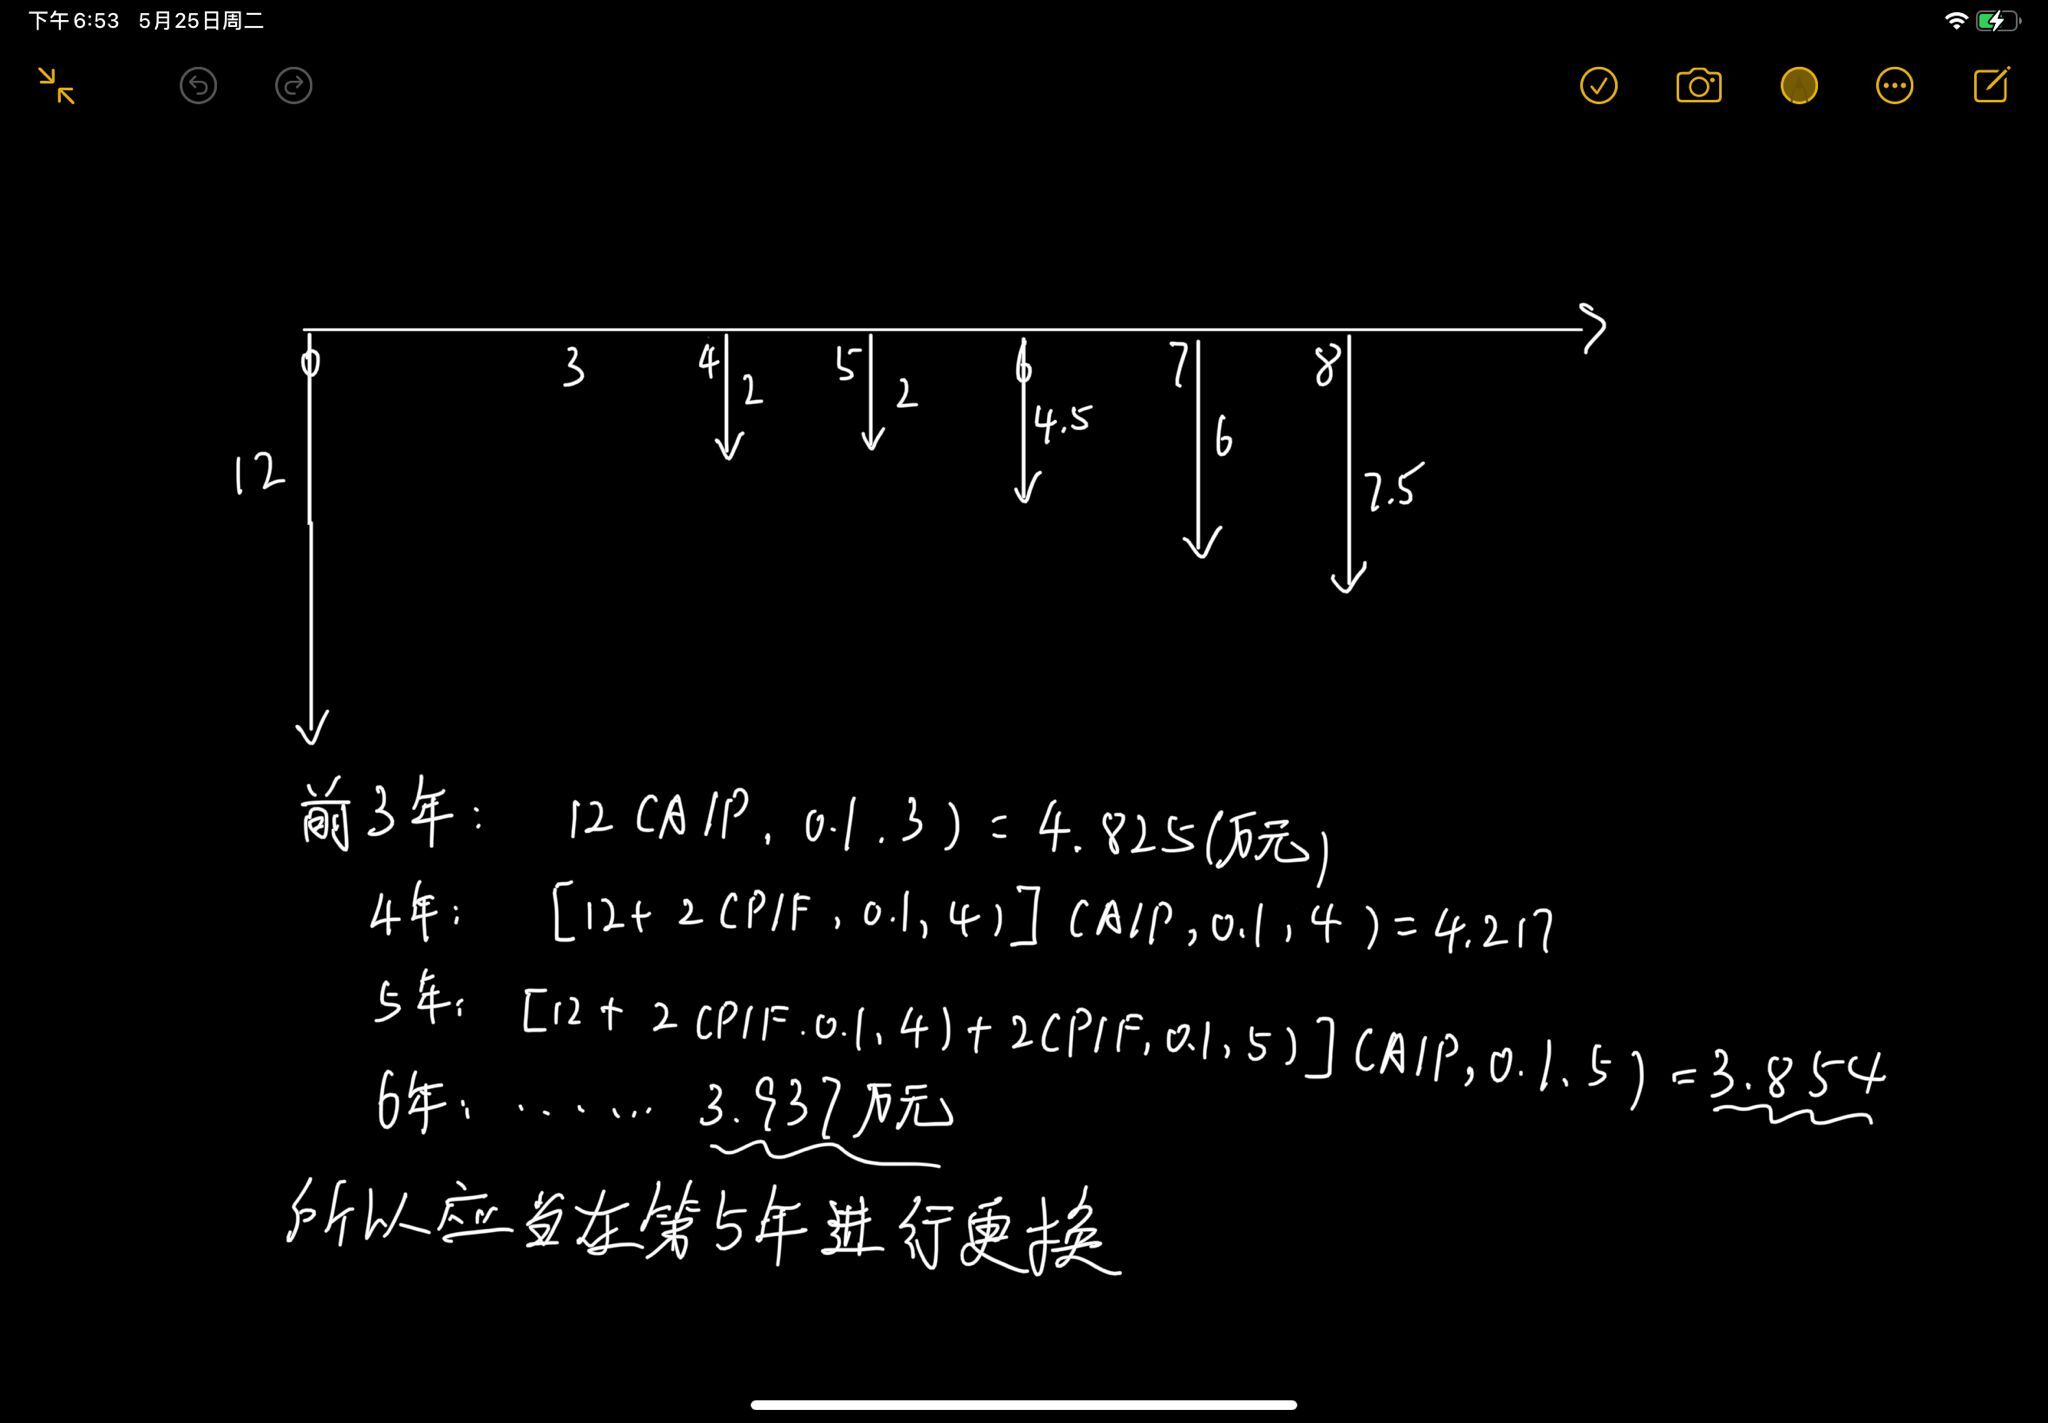 下午6:53 5月25日周二
0 3 4 5 6 7 8
12 2 2 4.5 6 7.5
前3年: 12(A/P, 0.1, 3) = 4.825(万元)
4年: [12+ 2(P/F, 0.1, 4)](A/P, 0.1, 4) = 4.217
5年: [12+ 2(P/F, 0.1, 4)+ 2(P/F, 0.1, 5)](A/P, 0.1, 5) = 3.854
6年: ...... 3.937万元
所以应当在第5年进行更换